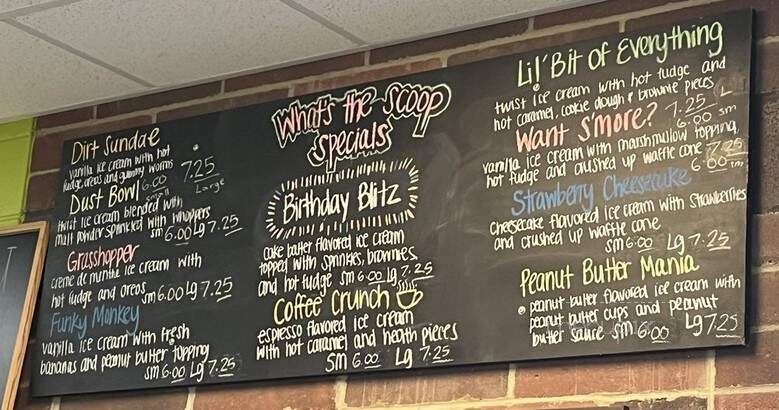 What's the scoop
specials
Dirt Sundae
vanilla ice cream with hot
fudge, oreos and gummy worms
6.00 small
7.25 Large
Dust Bowl
twist ice cream blended with
malt powder sprinkled with whoppers
sm 6.00 Lg 7.25
Grasshopper
creme de menthe ice cream with
hot fudge and oreos sm 6.00 Lg 7.25
Funky Monkey
vanilla ice cream with fresh
bananas and peanut butter topping
sm 6.00 Lg 7.25
Birthday Blitz
cake batter flavored ice cream
topped with sprinkles, brownies,
and hot fudge sm 6.00 Lg 7.25
Coffee Crunch
espresso flavored ice cream
with hot caramel and heath pieces
sm 6.00 Lg 7.25
Lil' Bit of Everything
twist ice cream with hot fudge and
hot caramel, cookie dough & brownie pieces
7.25 L
6.00 sm
Want S'more?
vanilla ice cream with marshmallow topping,
hot fudge and crushed up waffle cone 7.25
6.00 sm
Strawberry Cheesecake
cheesecake flavored ice cream with strawberries
and crushed up waffle cone
sm 6.00 Lg 7.25
Peanut Butter Mania
peanut butter flavored ice cream with
peanut butter cups and peanut
butter sauce sm 6.00 Lg 7.25